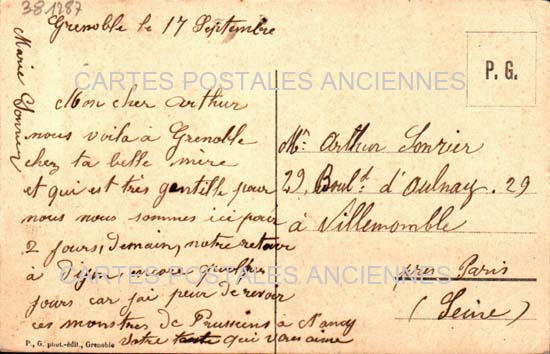 38.1287
Grenoble le 17 Septembre
CARTES POSTALES ANCIENNES
P. G.
Mon cher Arthur
nous voila à Grenoble
chez ta belle mère
et qui est très gentille pour
nous nous sommes ici pour
2 jours, demain, notre retour
à Dijon encore quelques
jours car j'ai peur de revoir
ces monstres de Prussiens à Nancy
votre tante qui vous aime
Marie
Mr. Arthur Sonrier
29. Boul.d d'Aulnay. 29
à Villemomble
près Paris
(Seine)
CARTES POSTALES ANCIENNES
P. G. phot.-édit., Grenoble